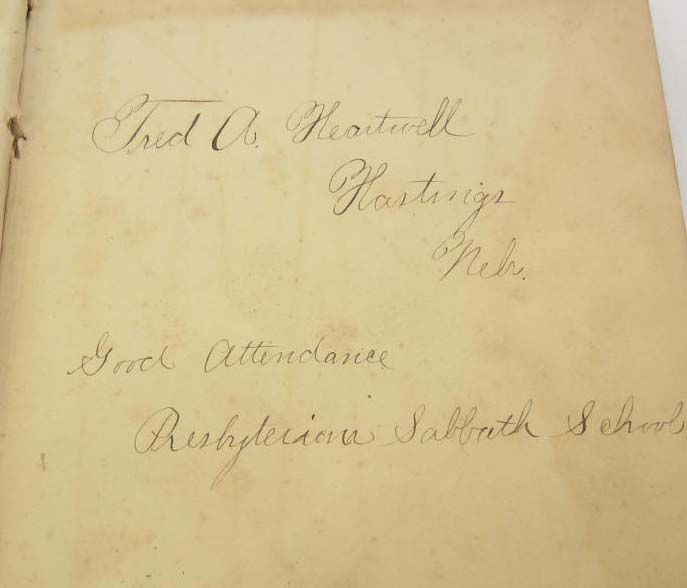 Fred A. Heartwell
Hastings
Nebr.
Good Attendance
Presbyterian Sabbath School